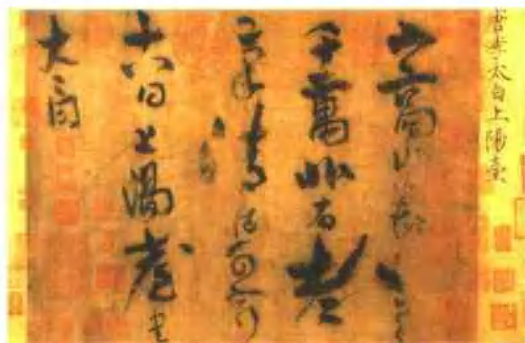 唐李太白上陽臺
山高水長物象
千萬非有老筆
清壯何窮
十八日上陽臺書
太白